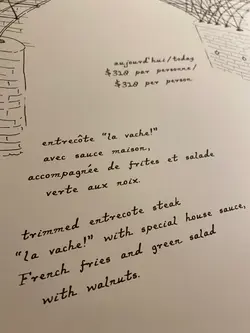 aujourd'hui/today
$328 par personne/
$328 per person
entrecôte "la vache!"
avec sauce maison,
accompagnée de frites et salade
verte aux noix.
trimmed entrecote steak
"la vache!" with special house sauce,
French fries and green salad
with walnuts.